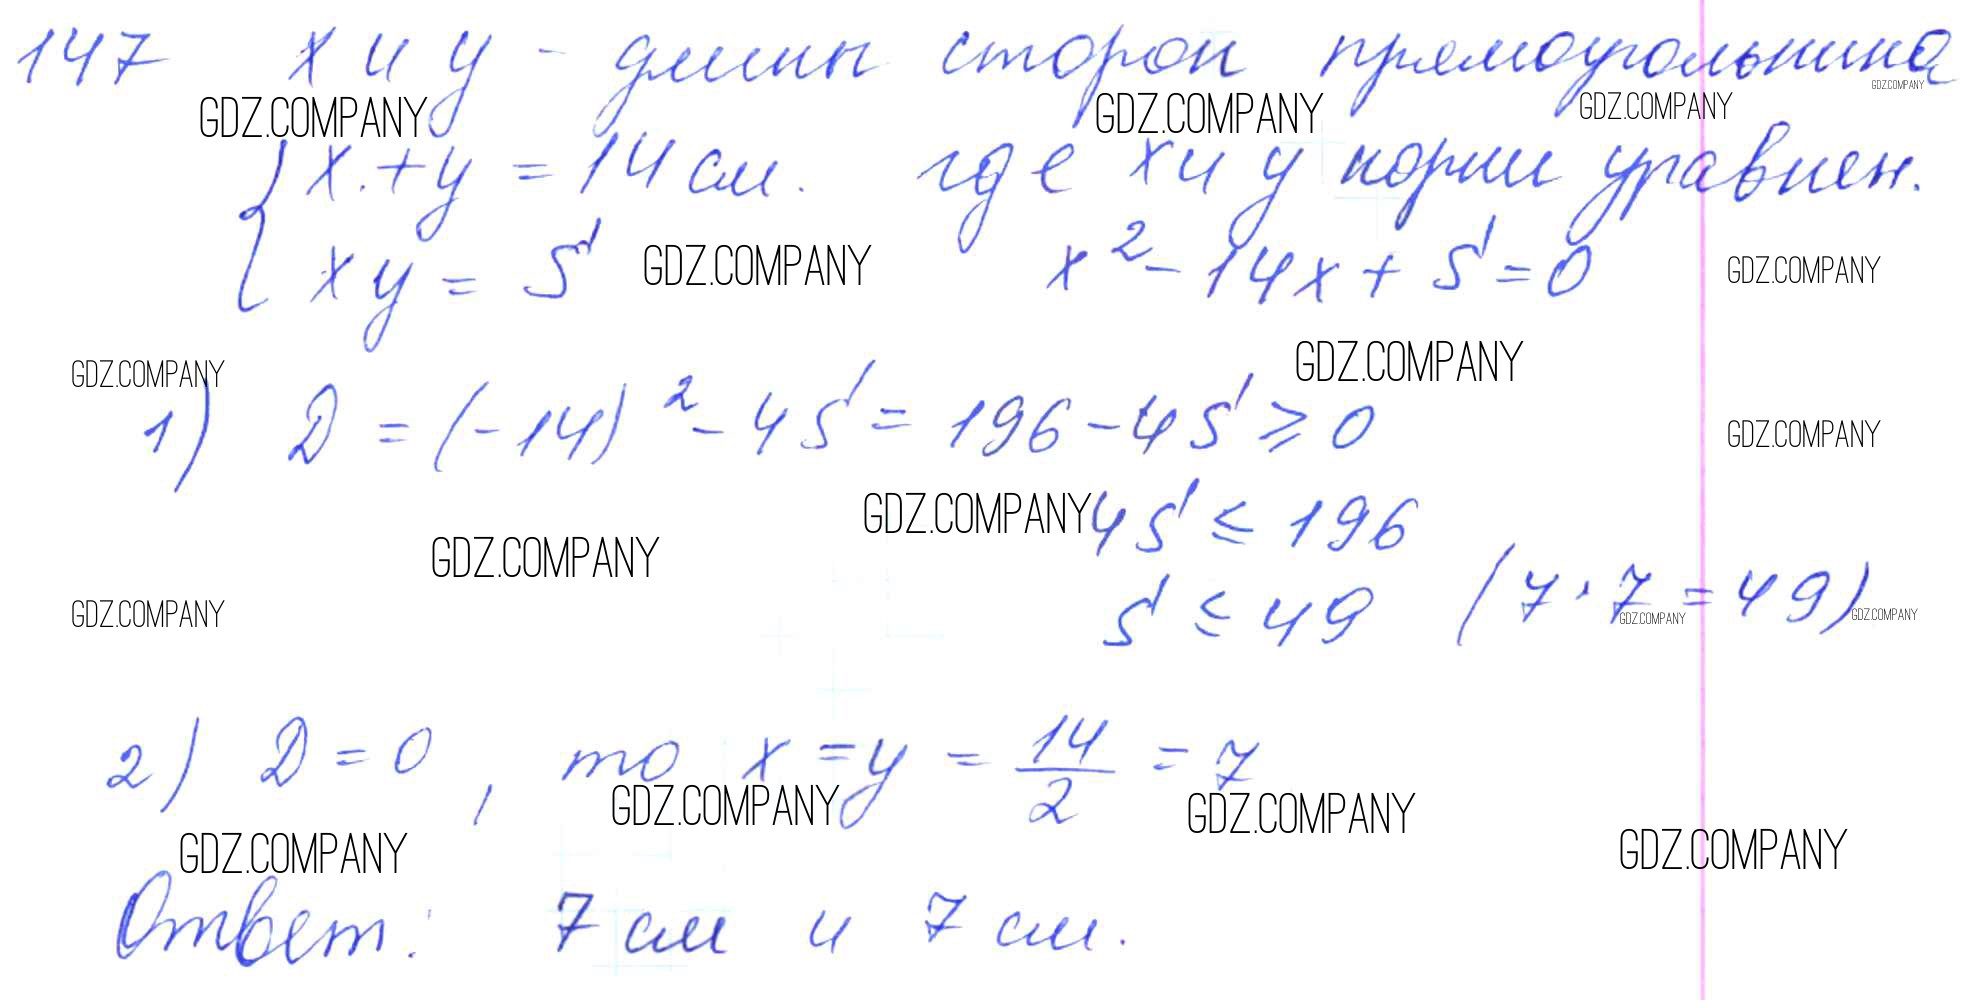 147 х и у - длины сторон прямоугольника
GDZ.COMPANY GDZ.COMPANY GDZ.COMPANY GDZ.COMPANY
{ x + y = 14 см. где х и у корни уравнен.
xy = S GDZ.COMPANY x² - 14x + S = 0 GDZ.COMPANY
GDZ.COMPANY GDZ.COMPANY
1) D = (-14)² - 4S = 196 - 4S ≥ 0 GDZ.COMPANY
GDZ.COMPANY 4S ≤ 196
GDZ.COMPANY
GDZ.COMPANY S ≤ 49 (7·7 = 49) GDZ.COMPANY GDZ.COMPANY
2) D = 0, то x = y = 14/2 = 7
GDZ.COMPANY GDZ.COMPANY
GDZ.COMPANY GDZ.COMPANY
Ответ: 7 см и 7 см.